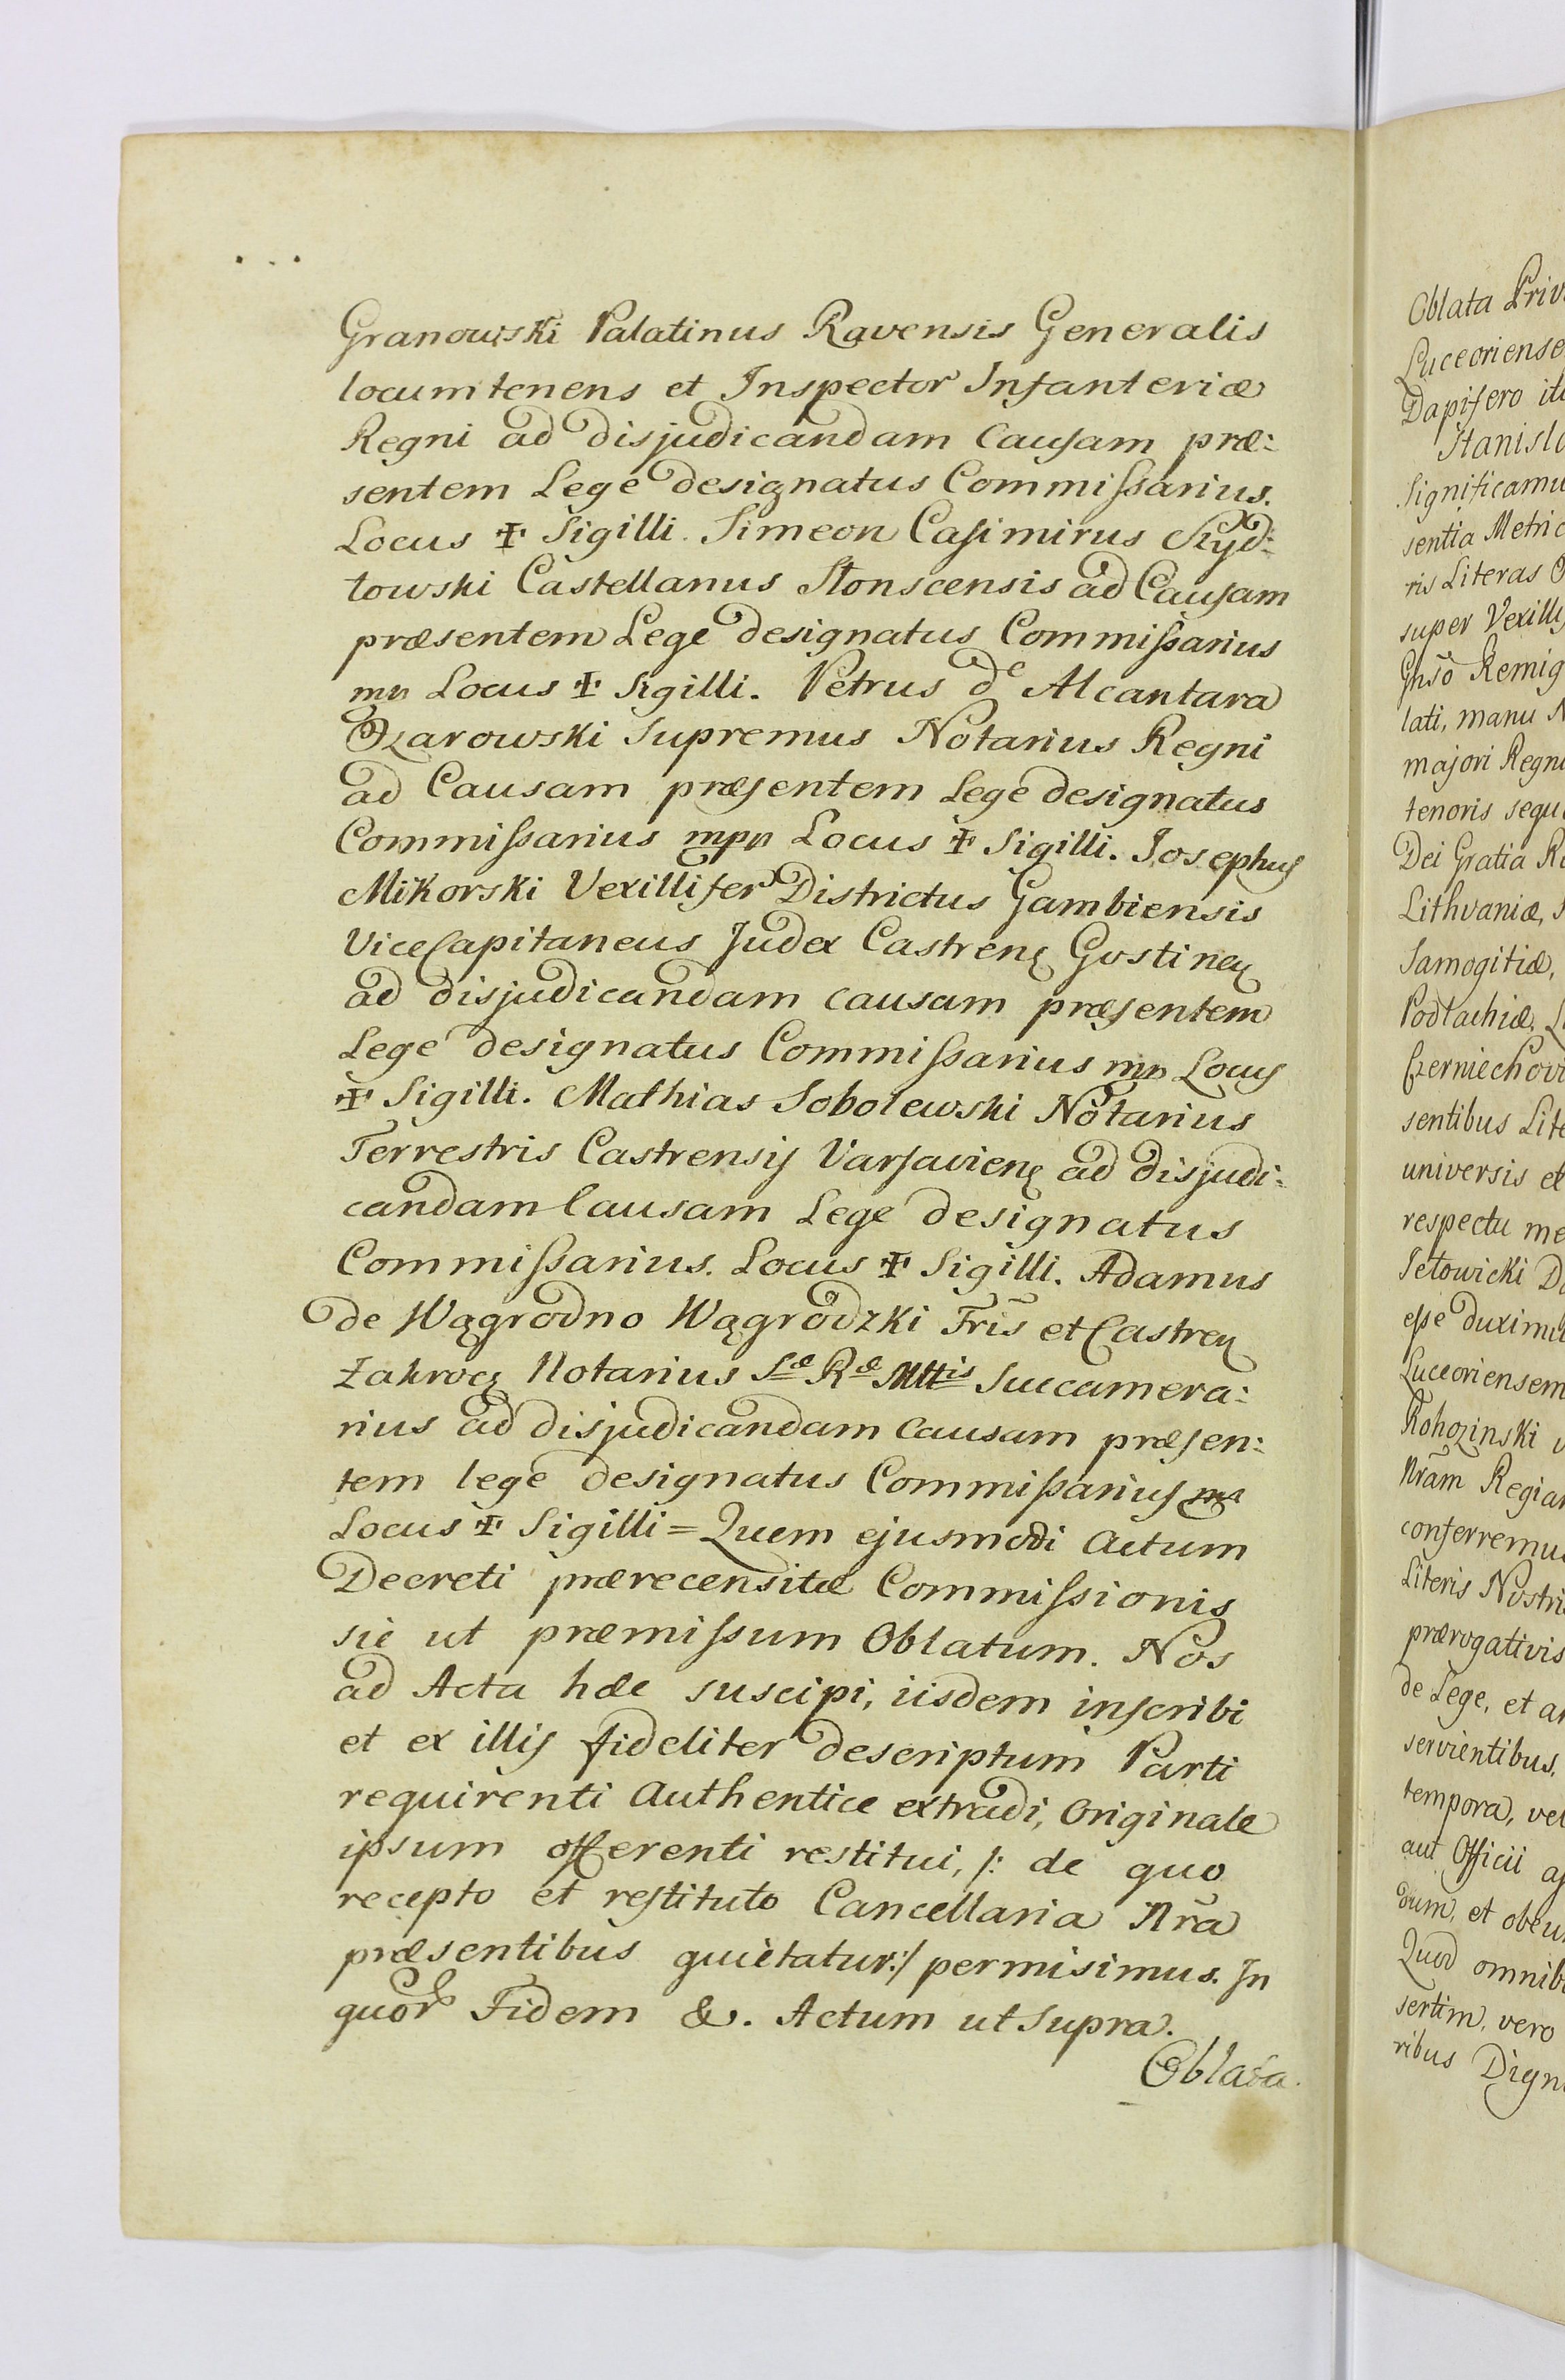 Granowski Palatinus Ravensis Generalis
locumtenens et Inspector Infanteriæ
Regni ad disjudicandam Causam præ:
sentem Lege designatus Commissarius.
Locus ✠ Sigilli. Simeon Casimirus Szyd:
łowski Castellanus Słonscensis ad Causam
præsentem Lege designatus Commissarius
mp Locus ✠ Sigilli. Petrus de Alcantara
Ożarowski Supremus Notarius Regni
ad Causam præsentem Lege designatus
Commissarius mpp Locus ✠ Sigilli. Josephus
Mikorski Vexillifer Districtus Gambiensis
ViceCapitaneus Judex Castren Gostinen
ad disjudicandam causam præsentem
Lege designatus Commissarius mp Locus
✠ Sigilli. Mathias Sobolewski Notarius
Terrestris Castrensis Varsavien ad disjudi:
candam Causam Lege designatus
Commissarius. Locus ✠ Sigilli. Adamus
de Wągrodno Wągrodzki Tris et Castren
Zakrocz Notarius Sæ Ræ Mttis Succamera:
rius ad disjudicandam Causam præsen:
tem lege designatus Commissarius mp
Locus ✠ Sigilli = Quem ejusmodi Actum
Decreti prærecensitæ Commissionis
sic ut præmissum Oblatum. Nos
ad Acta hæc suscipi, iisdem inscribi
et ex illis fideliter descriptum Parti
requirenti Authentice extradi, Originale
ipsum offerenti restitui, /: de quo
recepto et restituto Cancellaria Nra
præsentibus quietatur:/ permisimus. In
quor Fidem &. Actum ut Supra.
Oblata.
Oblata Priv
Luceoriense
Dapifero it
Stanisl
Significamu
sentia Metric
ris Literas O
super Vexill
Gnso Remig
lati, manu N
majori Regn
tenoris sequ
Dei Gratia R
Lithvaniæ, S
Samogitiæ,
Podlachiæ, L
Czerniechov
sentibus Lite
universis et
respectu me
Jełowicki D
esse duximu
Luceoriensem
Rohozinski v
Nram Regia
conferremu
Literis Nostri
prærogativis
de Lege, et a
servientibus,
tempora, vel
aut Officii a
dum, et obeu
Quod omnib
sertim, vero
ribus Digni